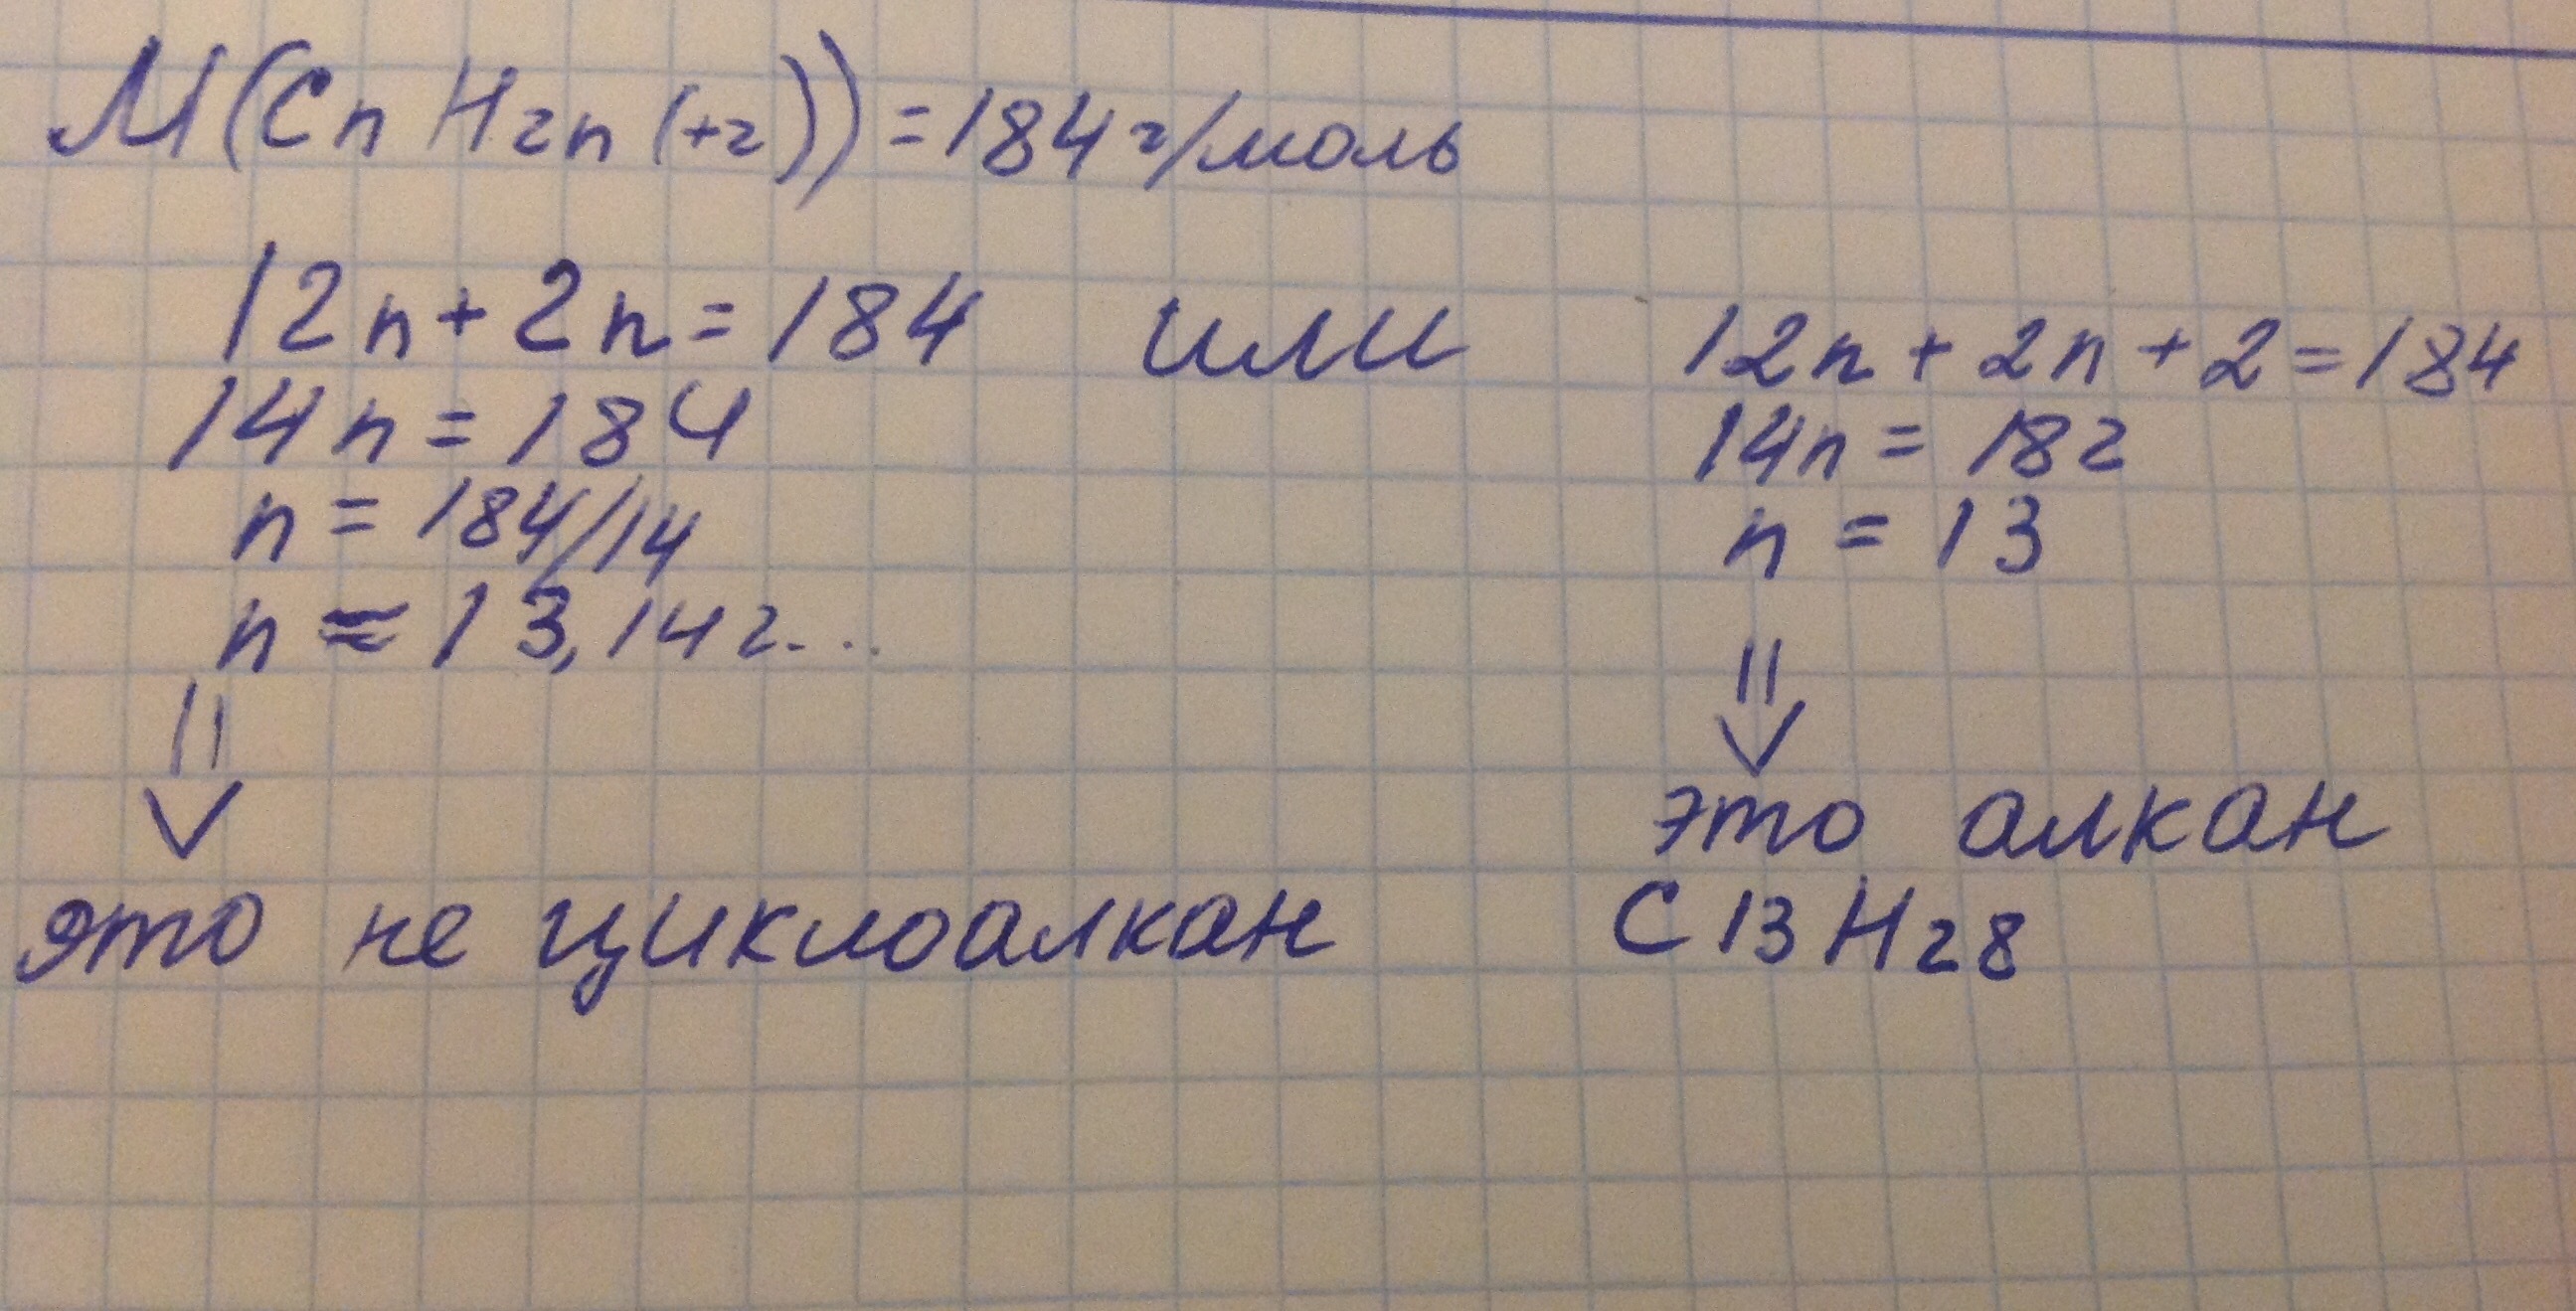 M(CnH2n(+2)) = 184 г/моль
12n + 2n = 184 или 12n + 2n + 2 = 184
14n = 184 14n = 182
n = 184/14 n = 13
n ≈ 13,142...
⇓ ⇓
это не циклоалкан это алкан
C13H28